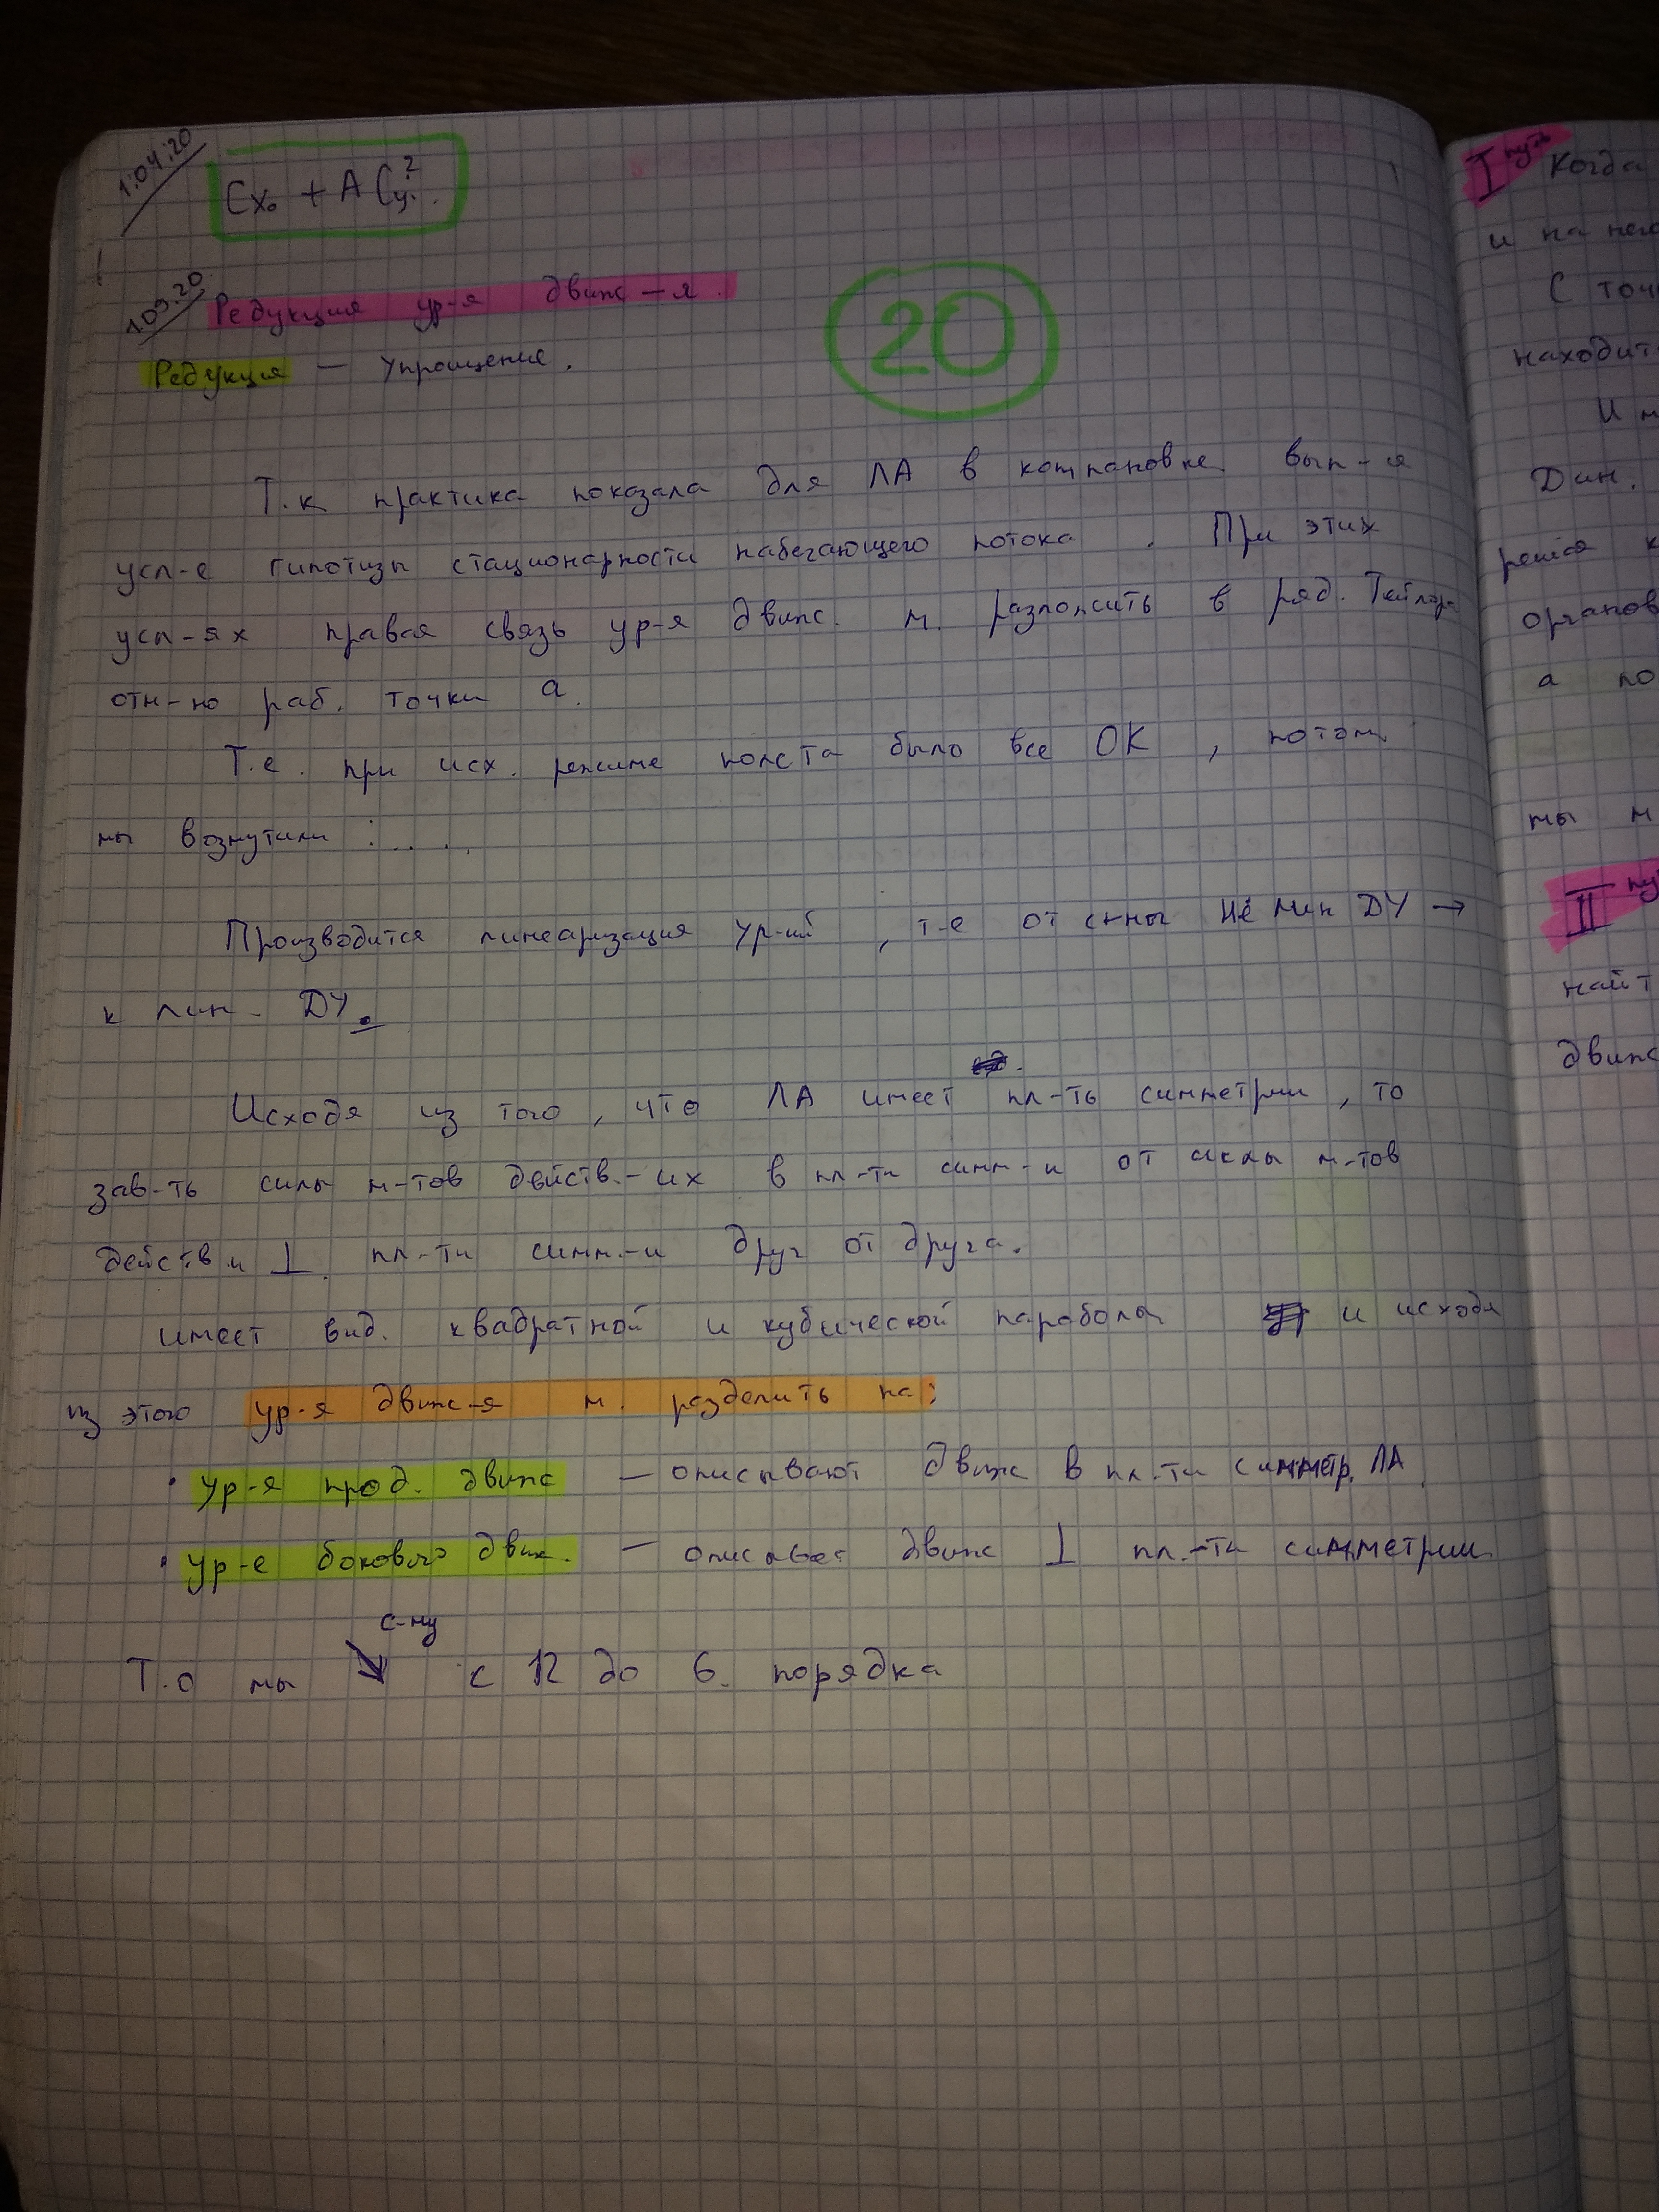 1:04:20
Cx₀ + A Cy².
1.09.20
Редукция ур-я движ-я.
20
Редукция — Упрощение.
Т.к практика показала для ЛА в компановке вып-я
усл-е гипотизы стационарности набегающего потока . При этих
усл-ях правая связь ур-я движ. м. разложить в ряд. Тейлора
отн-но раб. точки а.
Т.е. при исх. режиме полета было все ОК , потом
мы возмутили : . . . .
Производится линеаризация ур-ий , т-е от с-мы не лин ДУ →
к лин - ДУ.
Исходя из того , что ЛА имеет пл-ть симметрии , то
зав-ть силы м-тов действ.-их в пл-ти симм-и от силы м-тов
действ и ⊥ пл-ти симм.-и друг от друга.
имеет вид. квадратной и кубической параболы и исходя
из этого ур-я движ-я м. разделить на:
· ур-я прод. движ — описывают движ в пл.-ти симметр. ЛА
· ур-е бокового движ. — описывает движ ⊥ пл.-ти симметрии
с-му
Т.о мы ↘ с 12 до 6 порядка
I путь Когда
и на него
С точ
находит
И м
Дин.
органов
а по
мы м
II пу
найт
движ